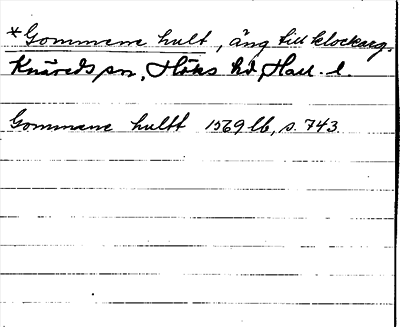 *Gommene hult, äng till klockarg.
Knäreds sn, Höks hd, Hall. l.
Gommene hultt 1569 lb, s. 743.